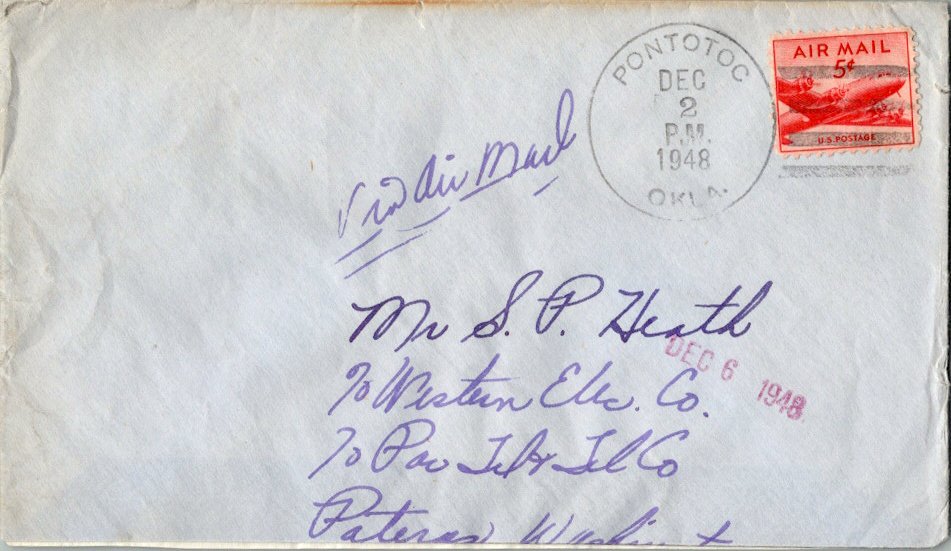 PONTOTOC
DEC
2
P.M.
1948
OKLA.
AIR MAIL
5¢
U.S. POSTAGE
Via Air Mail
Mr S. P. Heath
DEC 6 1948
% Western Elec. Co.
% Pac Tel & Tel Co
Pateros